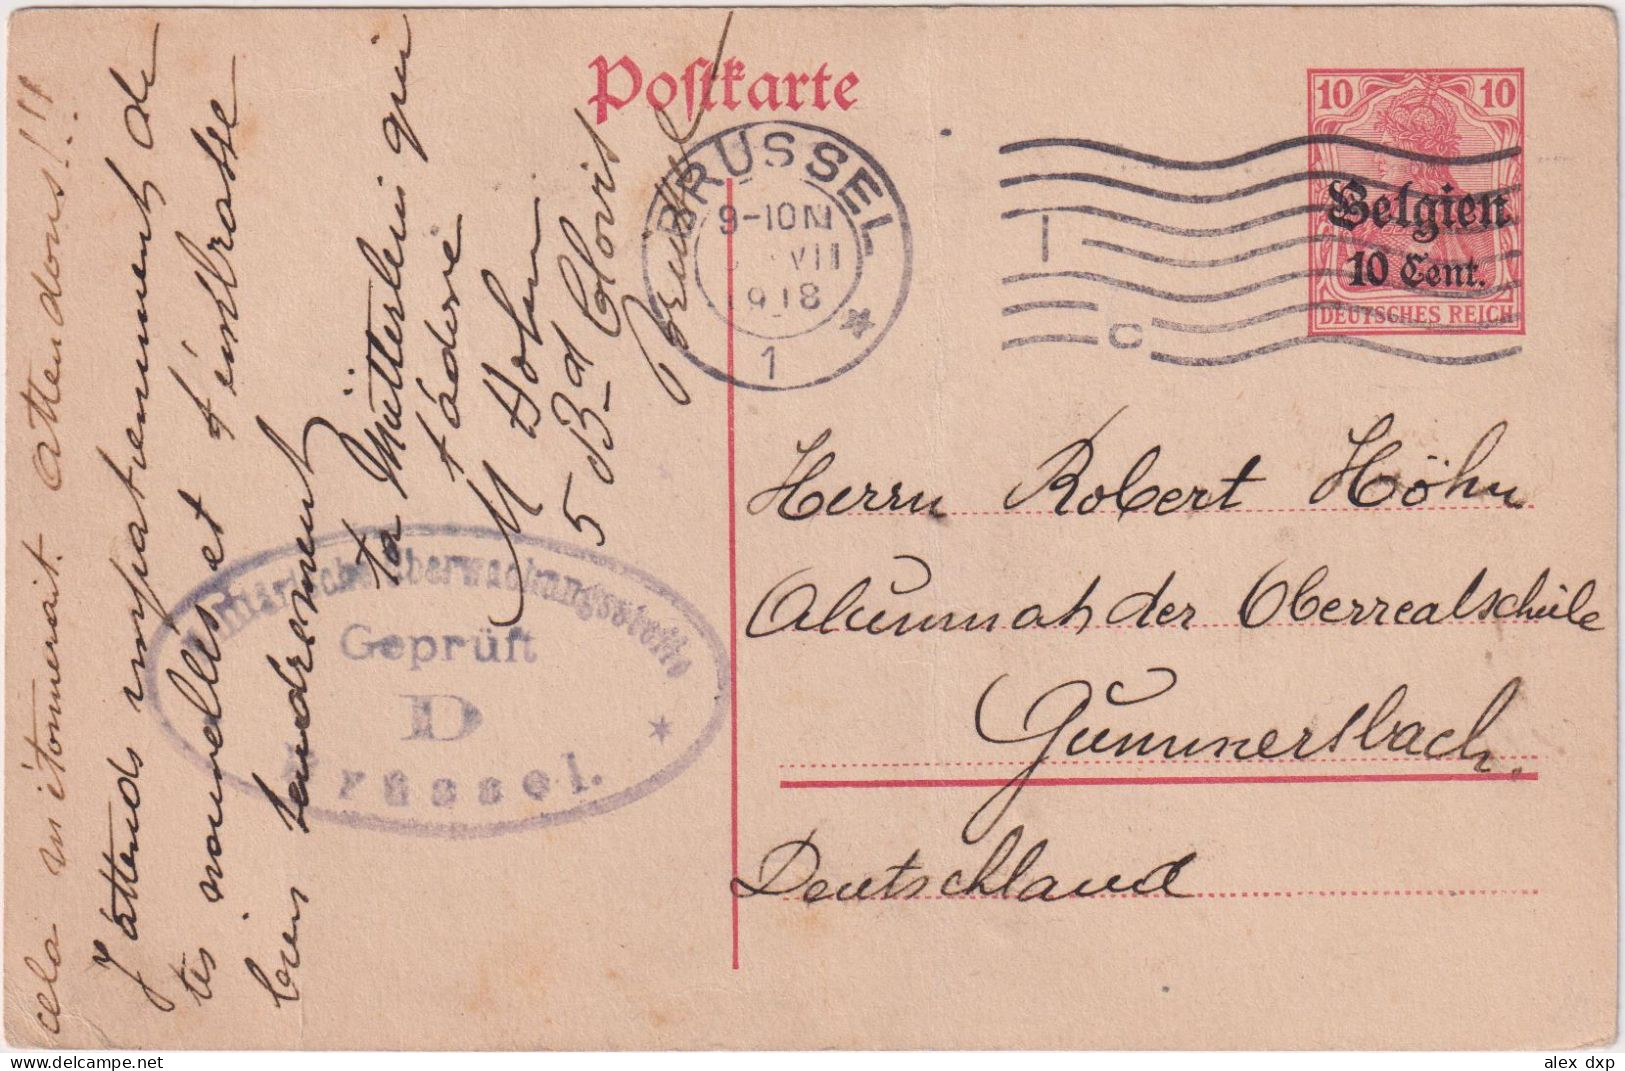 cela m'étonnerait. attendons!!!
J'attends impatiemment de
tes nouvelles et t'embrasse
bien tendrement
ta Mütterlein qui
t'adore
M Höhn
5 Bd Clovis
Bruxel
Postkarte
BRÜSSEL
9-10 N
VII
1918
1
10 10
Belgien
10 Cent.
DEUTSCHES REICH
1
c
Militärische Überwachungsstelle
Geprüft
D
Brüssel.
Herrn Robert Höhn
Alumnah der Oberrealschule
Gummersbach.
Deutschland
alex dxp